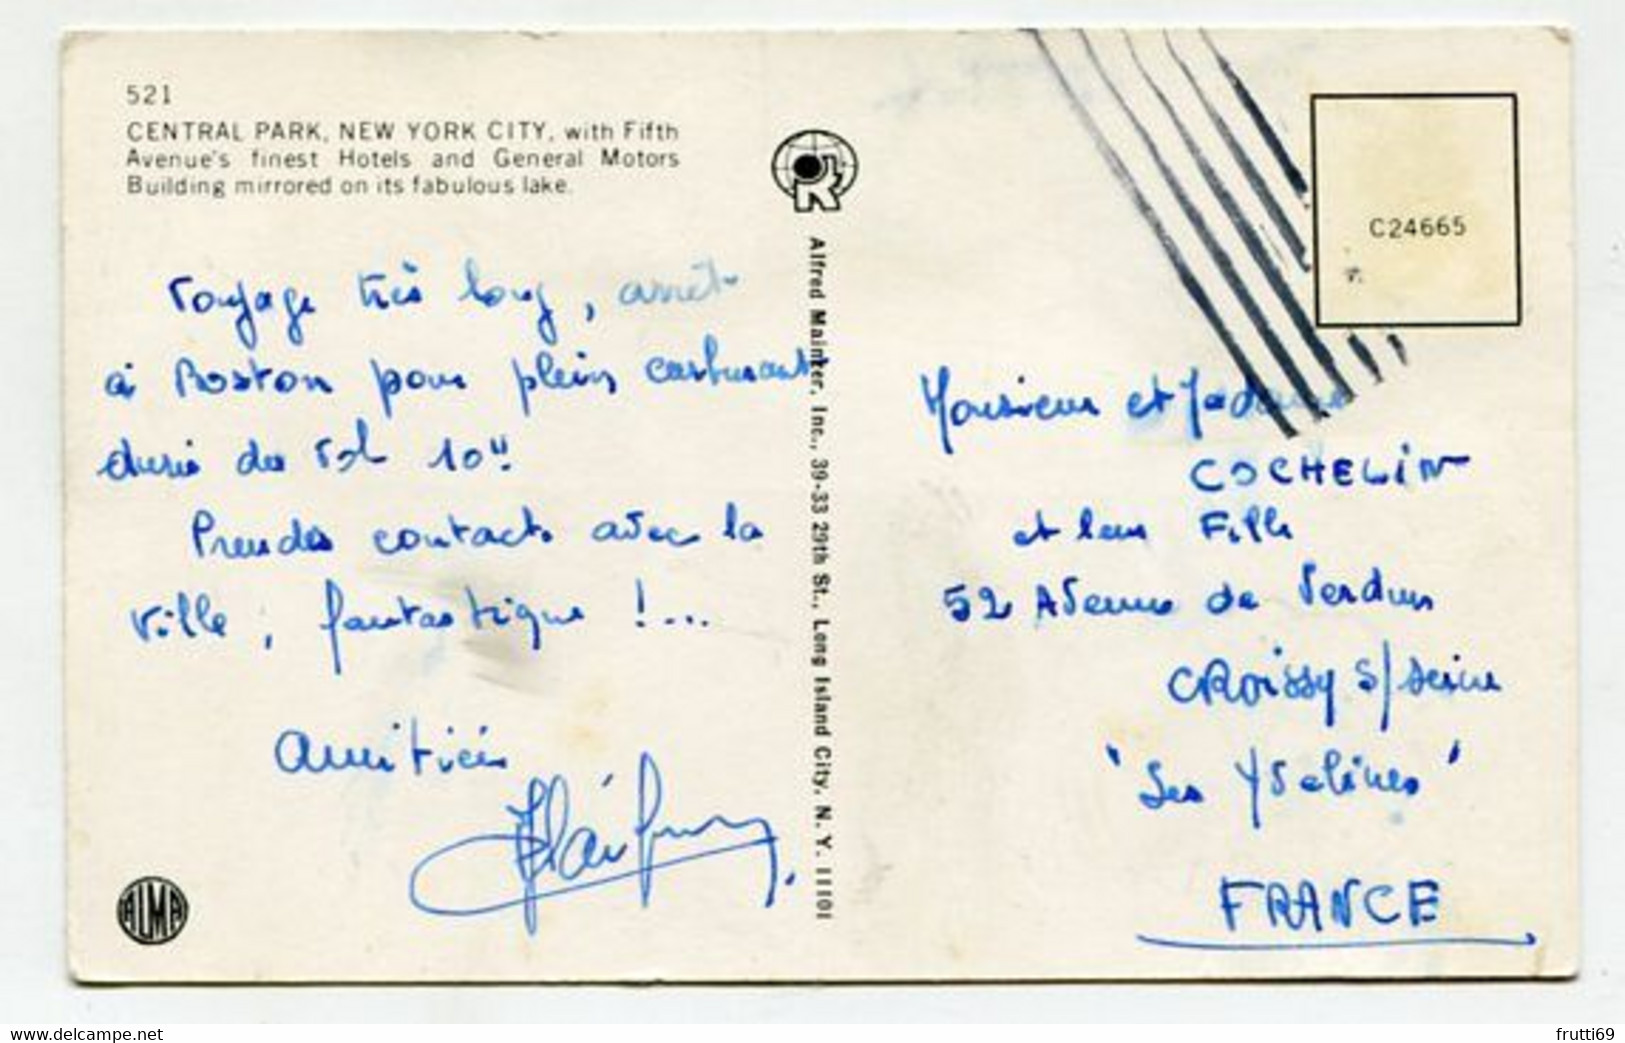 521
CENTRAL PARK, NEW YORK CITY, with Fifth
Avenue's finest Hotels and General Motors
Building mirrored on its fabulous lake.
Voyage très long, arrêt
à Boston pour plein carburant
durée du vol 10H
Prendes contacts avec la
ville, fantastique !...
Amitiés
ALMA
Alfred Mainzer, Inc., 39-33 29th St., Long Island City, N. Y. 11101
C24665
Monsieur et Madame
COCHELIN
et leur Fille
52 Avenue de Verdun
CROissy S/Seine
"Les Yvelines"
FRANCE
www.delcampe.net
frutti69